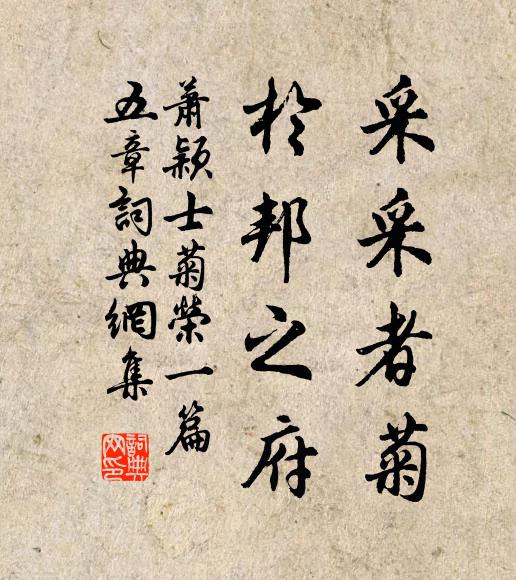 采采者菊
於邦之府
蕭穎士菊榮一篇
五章詞典網集
詞典網印